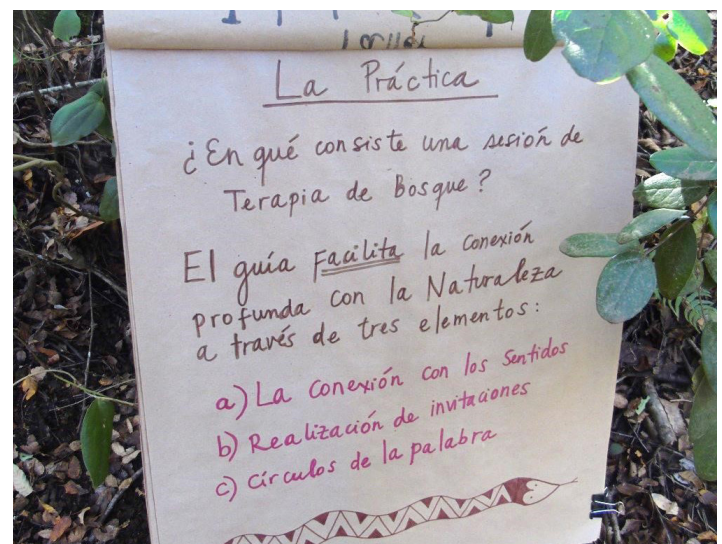 La Práctica
¿En qué consiste una sesión de
Terapia de Bosque?
El guía Facilita la conexión
profunda con la Naturaleza
a través de tres elementos:
a) La conexión con los Sentidos
b) Realización de invitaciones
c) Círculos de la palabra